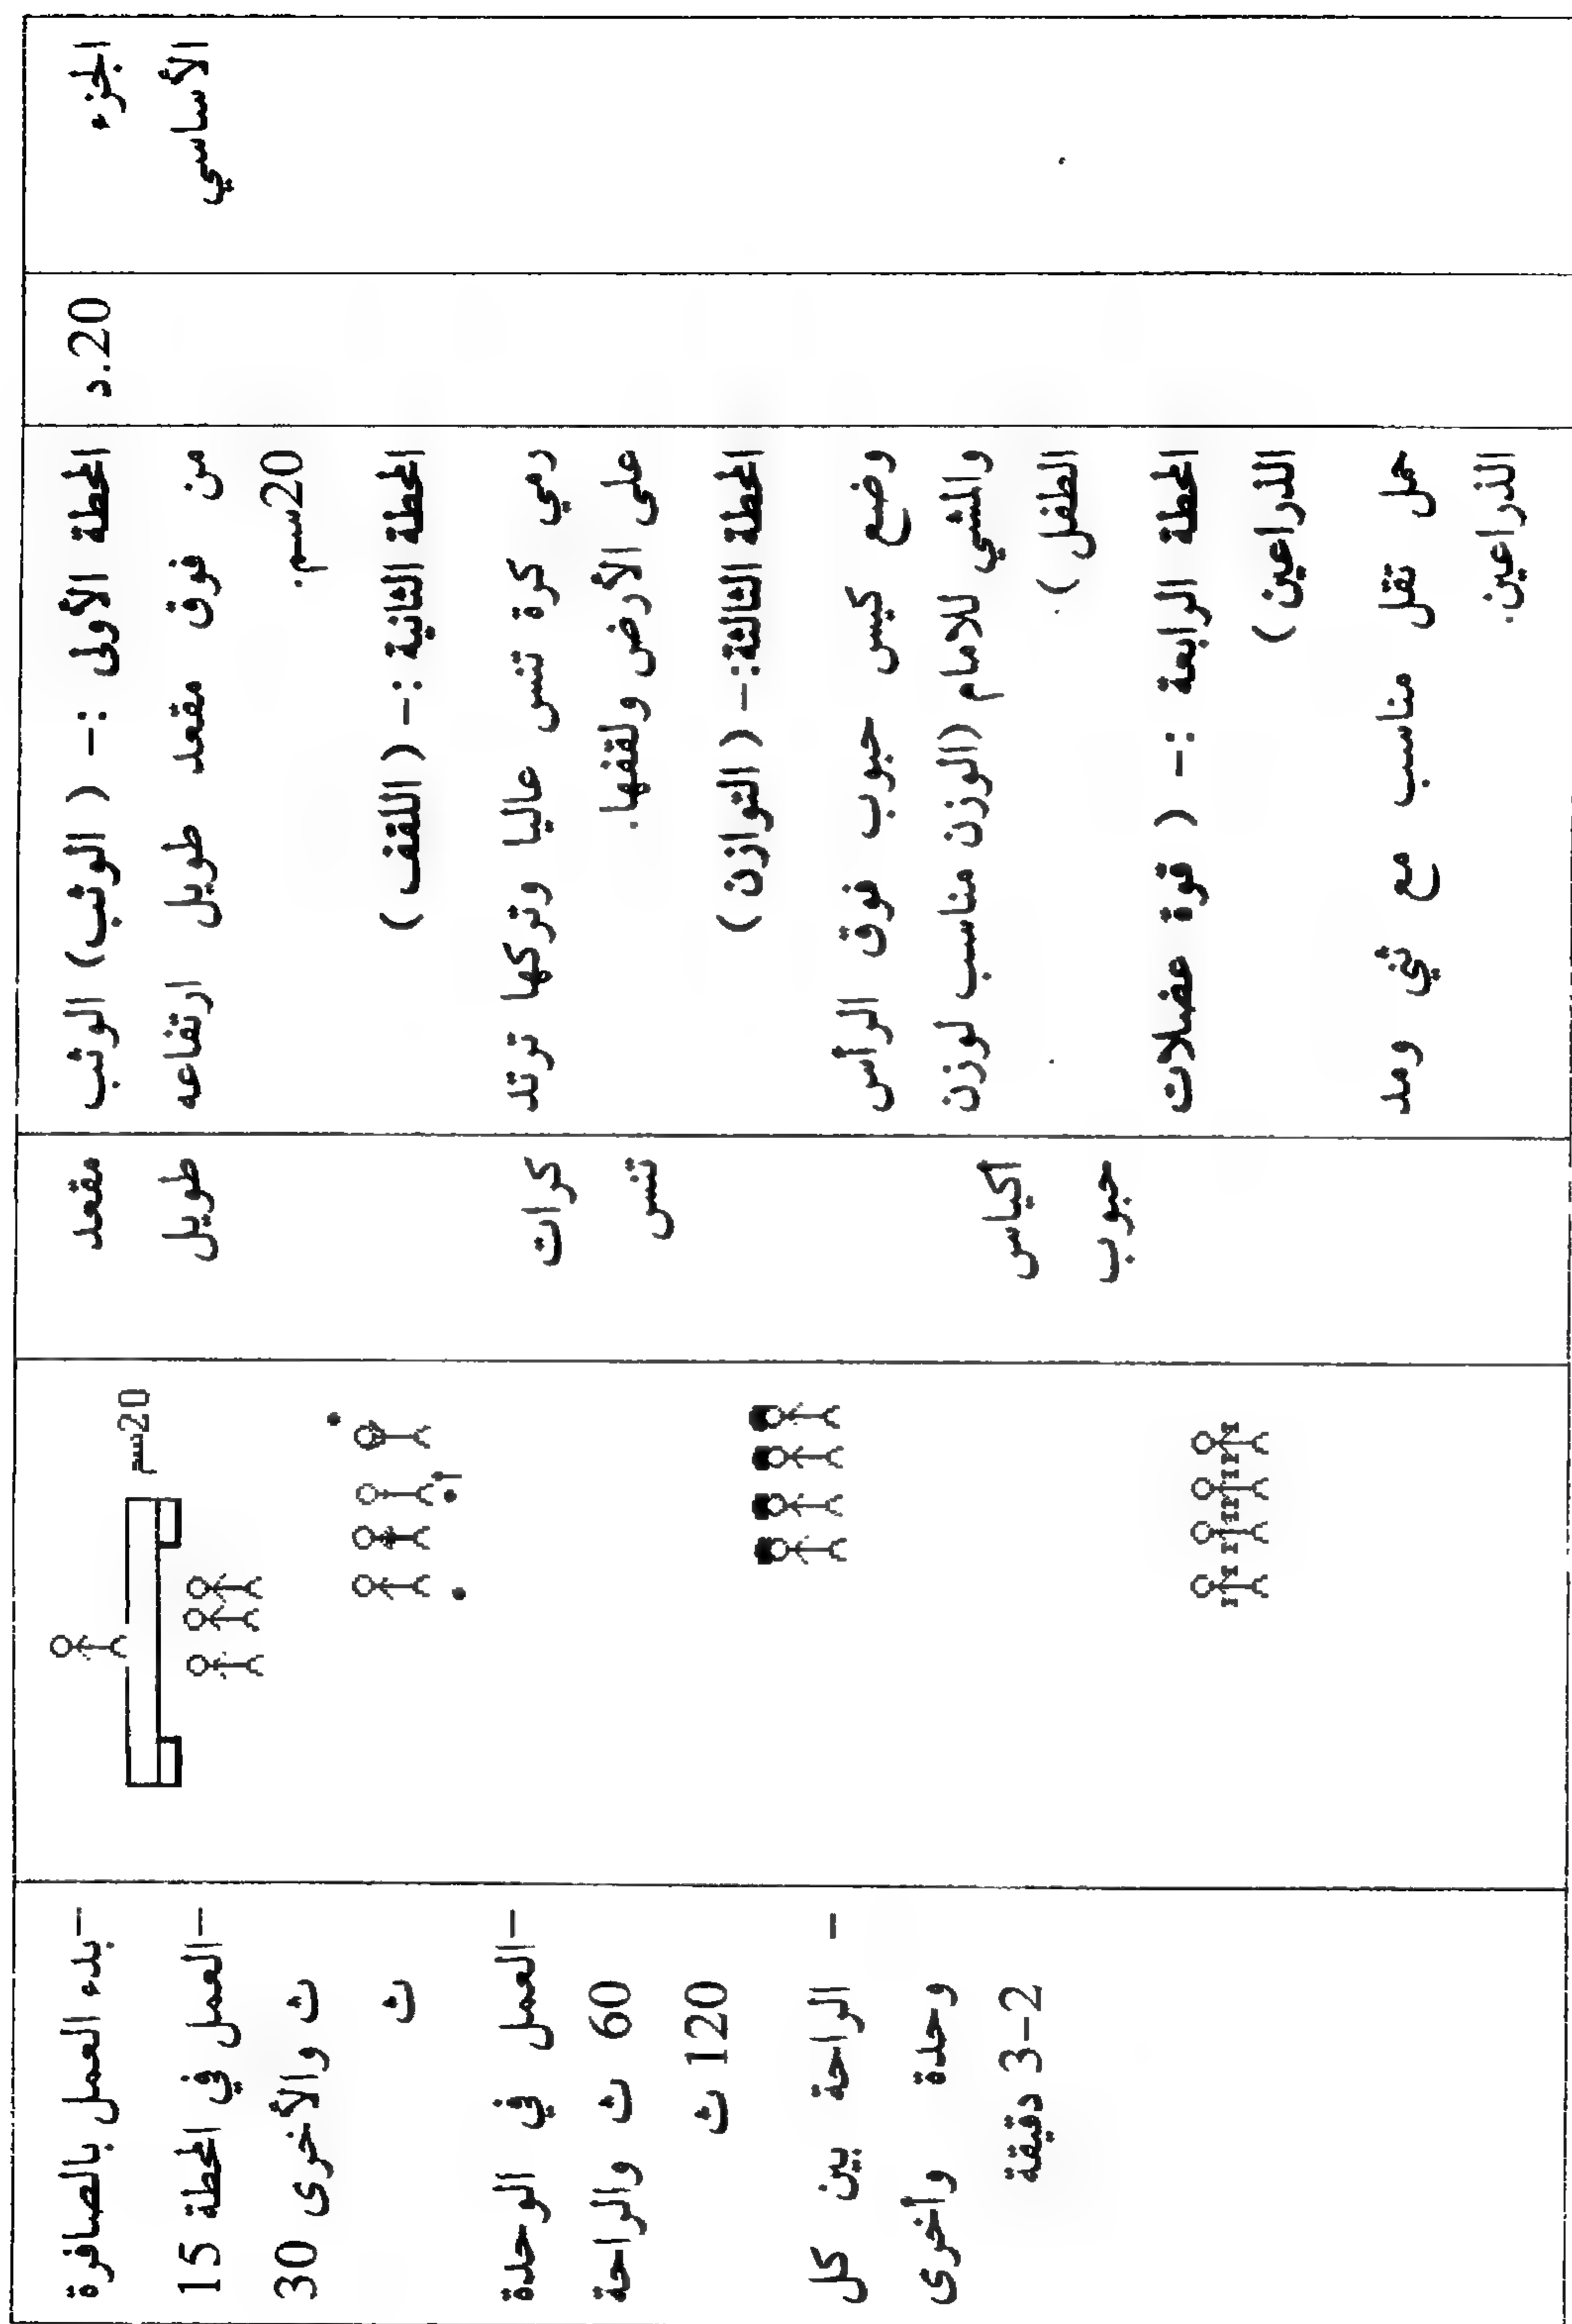 الجزء
الأساسي
20.د
المحطة الأولى :- ( الوثب) الوثب
من فوق مقعد طويل ارتفاعه
20سم.
المحطة الثانية :- ( اللقف )
رمي كرة تنس عاليا وتركها ترتد
على الأرض ولقفها.
المحطة الثالثة:- ( التوازن )
وضع كيس حبوب فوق الرأس
والمشي للامام (الوزن مناسب لوزن
الطفل ) .
المحطة الرابعة :- ( قوة عضلات
الذراعين )
حمل ثقل مناسب مع ثني ومد
الذراعين.
مقعد
طويل
كرات
تنس
أكياس
حبوب
20سم
-بدء العمل بالصافرة
-العمل في المحطة 15
ث والأخرى 30
ث
-العمل في الوحدة
60 ث والراحة
120 ث
- الراحة بين كل
وحدة وأخرى
2-3 دقيقة